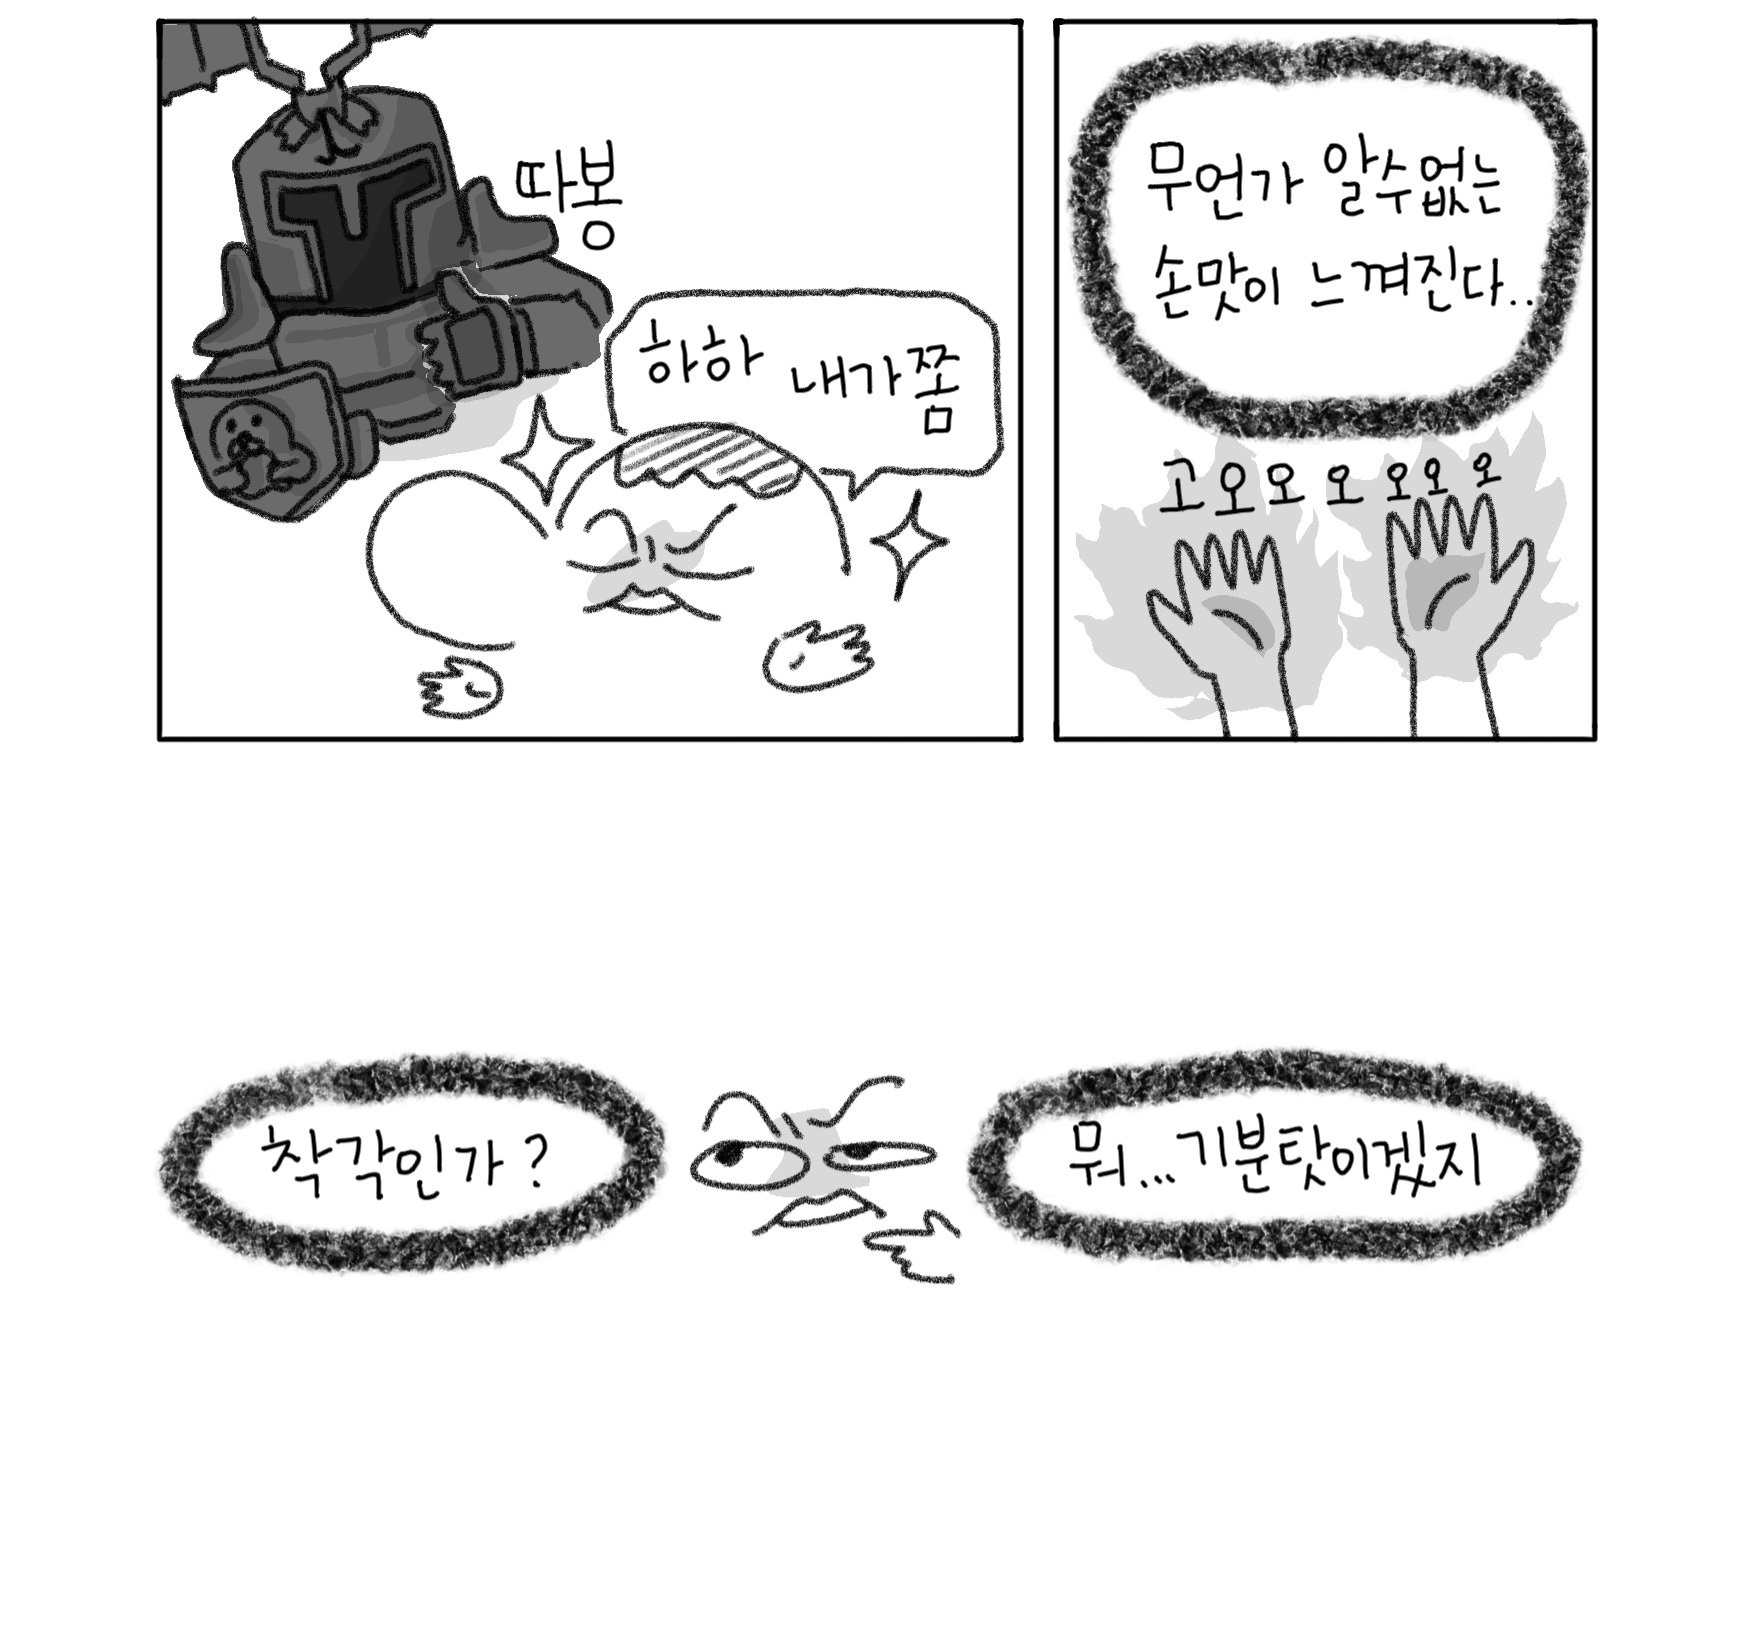 따봉
하하 내가쫌
무언가 알수없는
손맛이 느껴진다..
고오오오오오오
착각인가?
뭐...기분탓이겠지